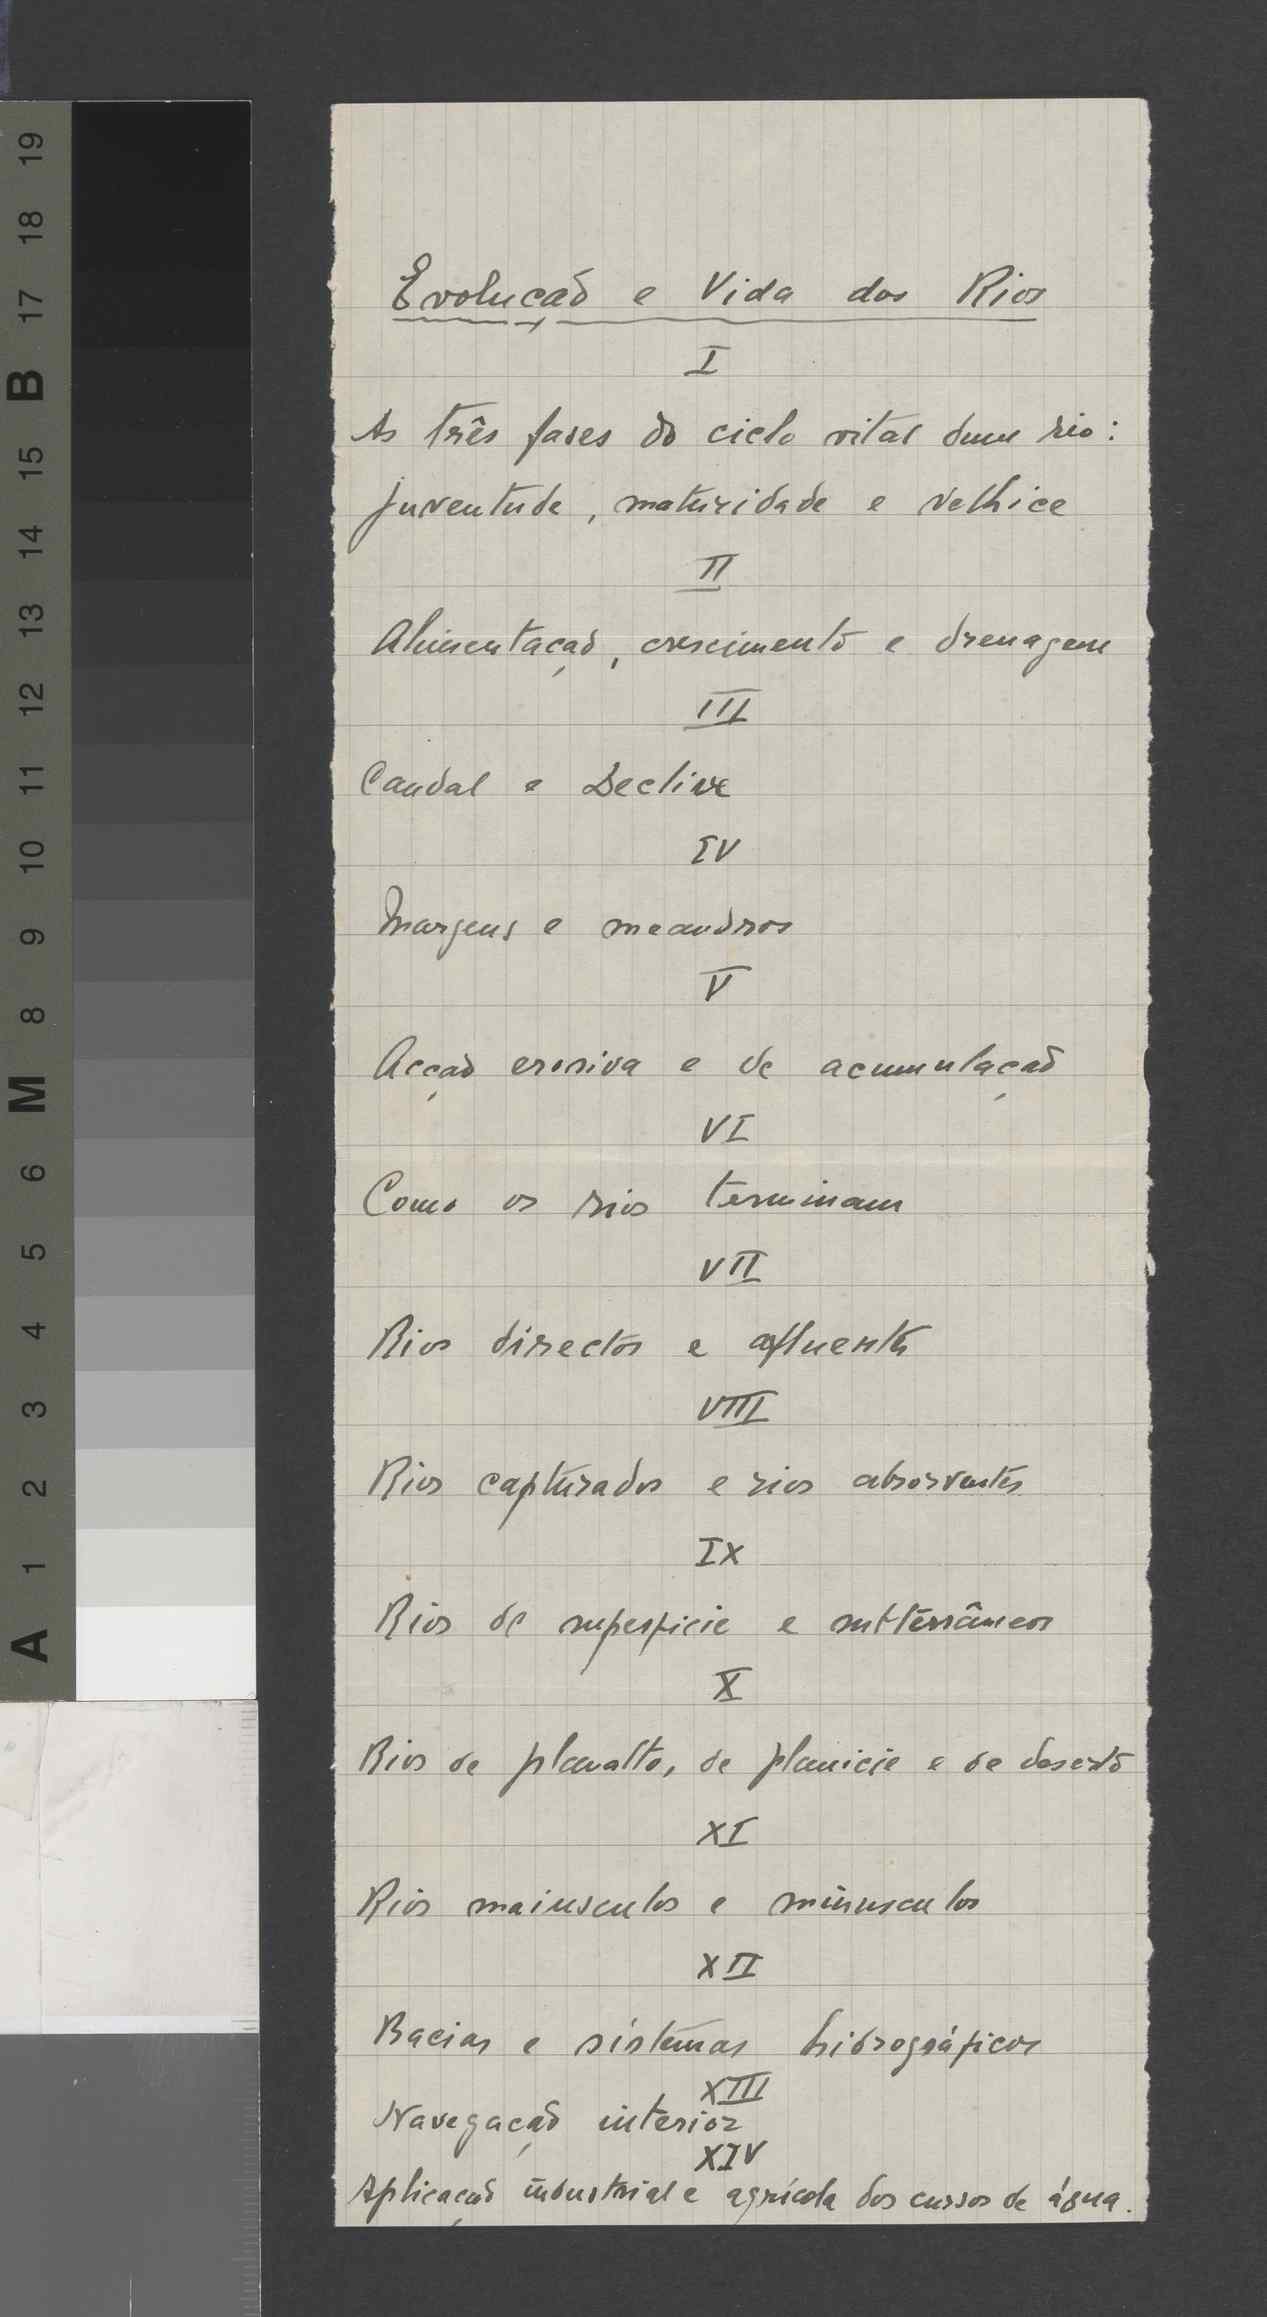 Evolução e Vida dos Rios
I
As três fases do ciclo vital dum rio:
juventude, maturidade e velhice
II
Alimentação, crescimento e drenagem
III
Caudal e Declive
IV
Margens e meandros
V
Acção erosiva e de acumulação
VI
Como os rios terminam
VII
Rios directos e afluentes
VIII
Rios capturados e rios absorventes
IX
Rios de superficie e subterrâneos
X
Rios de planalto, de planicie e de deserto
XI
Rios maiusculos e minusculos
XII
Bacias e sistemas hidrográficos
XIII
Navegação interior
XIV
Aplicação industrial e agrícola dos cursos de água.
19
18
17
B
15
14
13
12
11
10
9
8
M
6
5
4
3
2
1
A